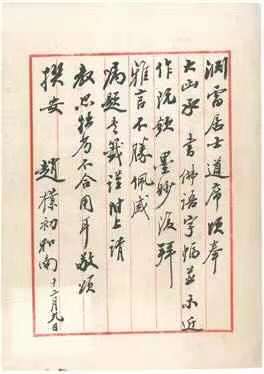 渊雷居士道席頃奉
大函承 書佛語字幅並示近
作既欽 墨妙復拜
雅言不勝佩感
嘱題書籤謹附上請
教恐 不合用耳敬頌
撰安 趙樸初和南 十二月九日